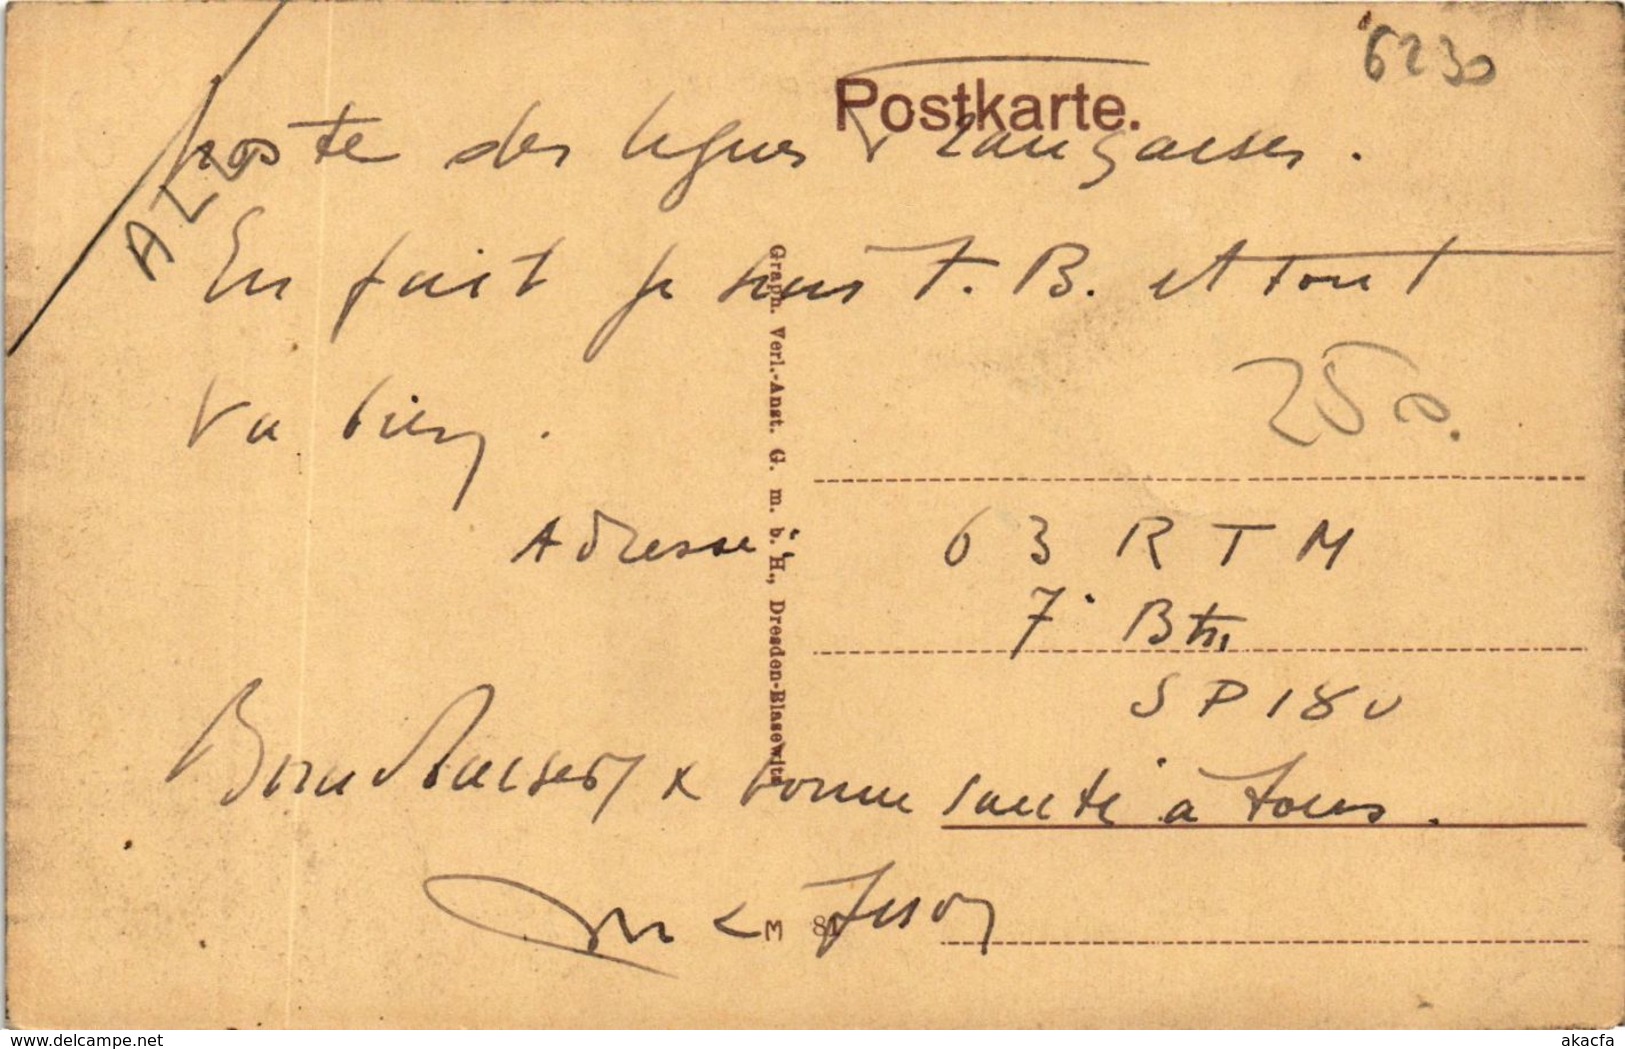 6230
Postkarte.
poste des lignes françaises.
ALL
En fait je suis T. B. et tout
va bien.
250.
Adresse :
63 RTM
7° Btn
SP 180
Bons baisers & bonne santé à tous.
M 81
Graph. Verl.-Anst. G. m. b. H., Dresden-Blasewitz
delcampe.net
akacfa